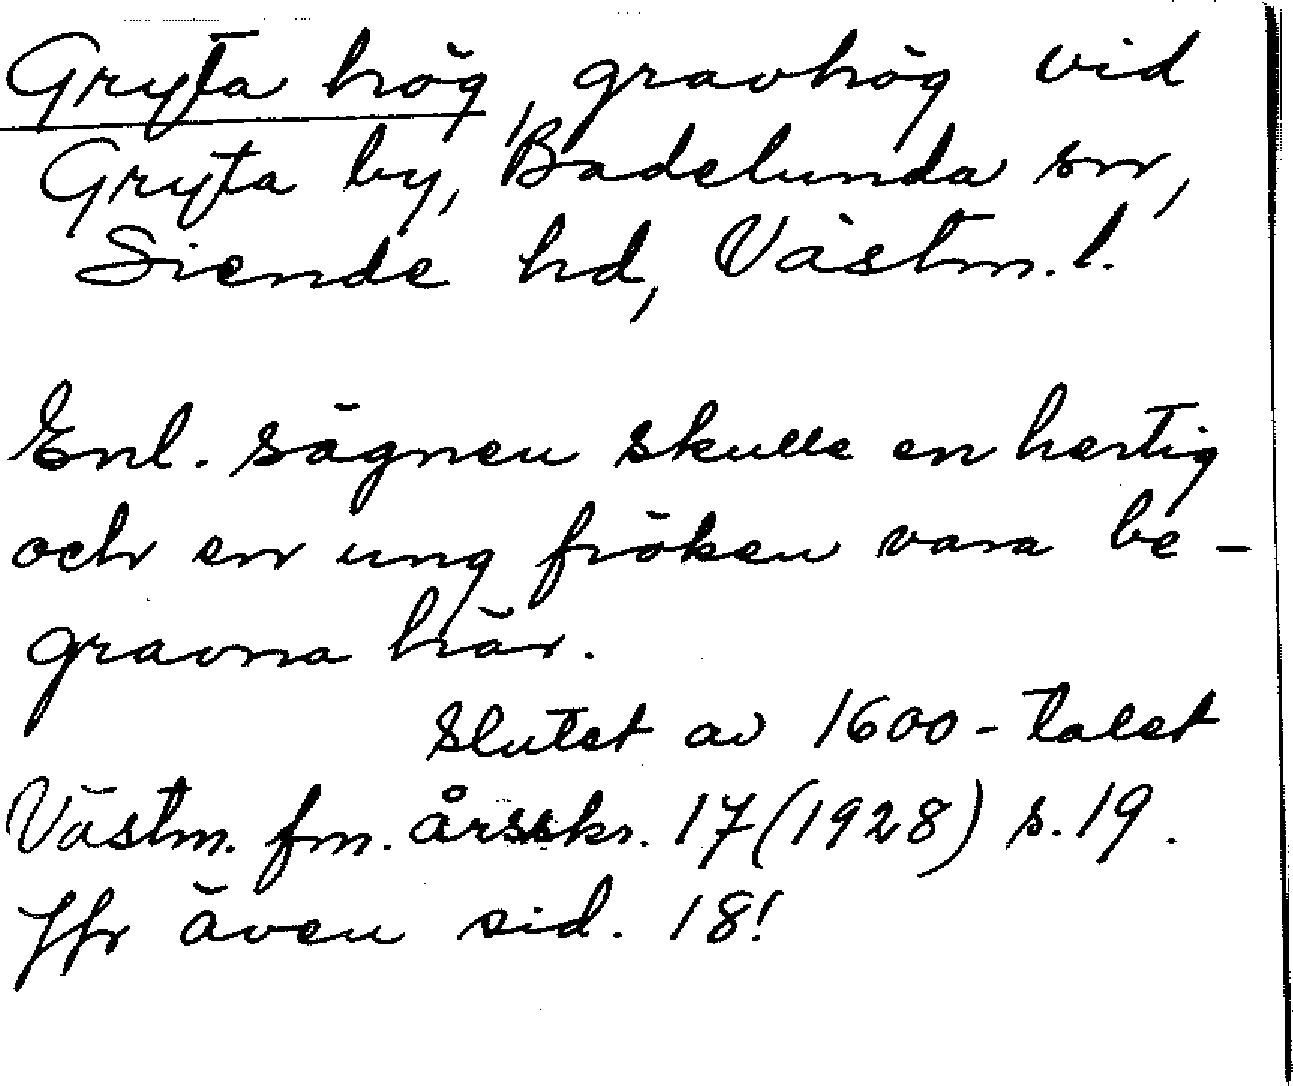 Gryta hög, gravhög vid
Gryta by, Badelunda sn,
Siende hd, Västm. l.
Enl. sägnen skulle en hertig
och en ung fröken vara be-
gravna här.
Slutet av 1600-talet
Västm. fm. årsskr. 17 (1928) s. 19.
Jfr även sid. 18!